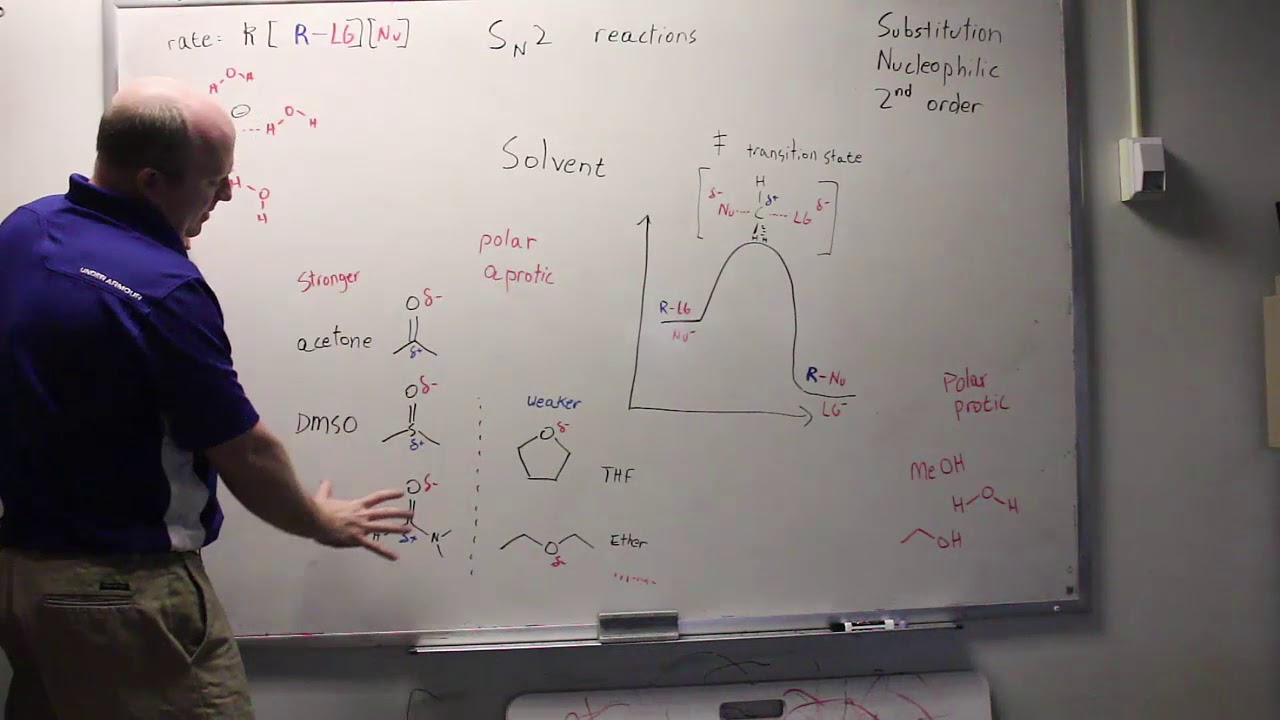 rate: k[ R-LG][Nu]
SN2 reactions
Substitution
Nucleophilic
2nd order
H O H
⊖
H O H
H O
H
Solvent
‡ transition state
H
δ- δ+ δ-
Nu C LG
H H
polar
aprotic
Stronger
acetone
O δ-
δ+
DMSO
O δ-
S
δ+
O δ-
H δ+ N
Weaker
O δ-
THF
O
δ-
Ether
R-LG
Nu-
R-Nu
LG-
Polar
protic
MeOH
H O H
OH
UNDER ARMOUR